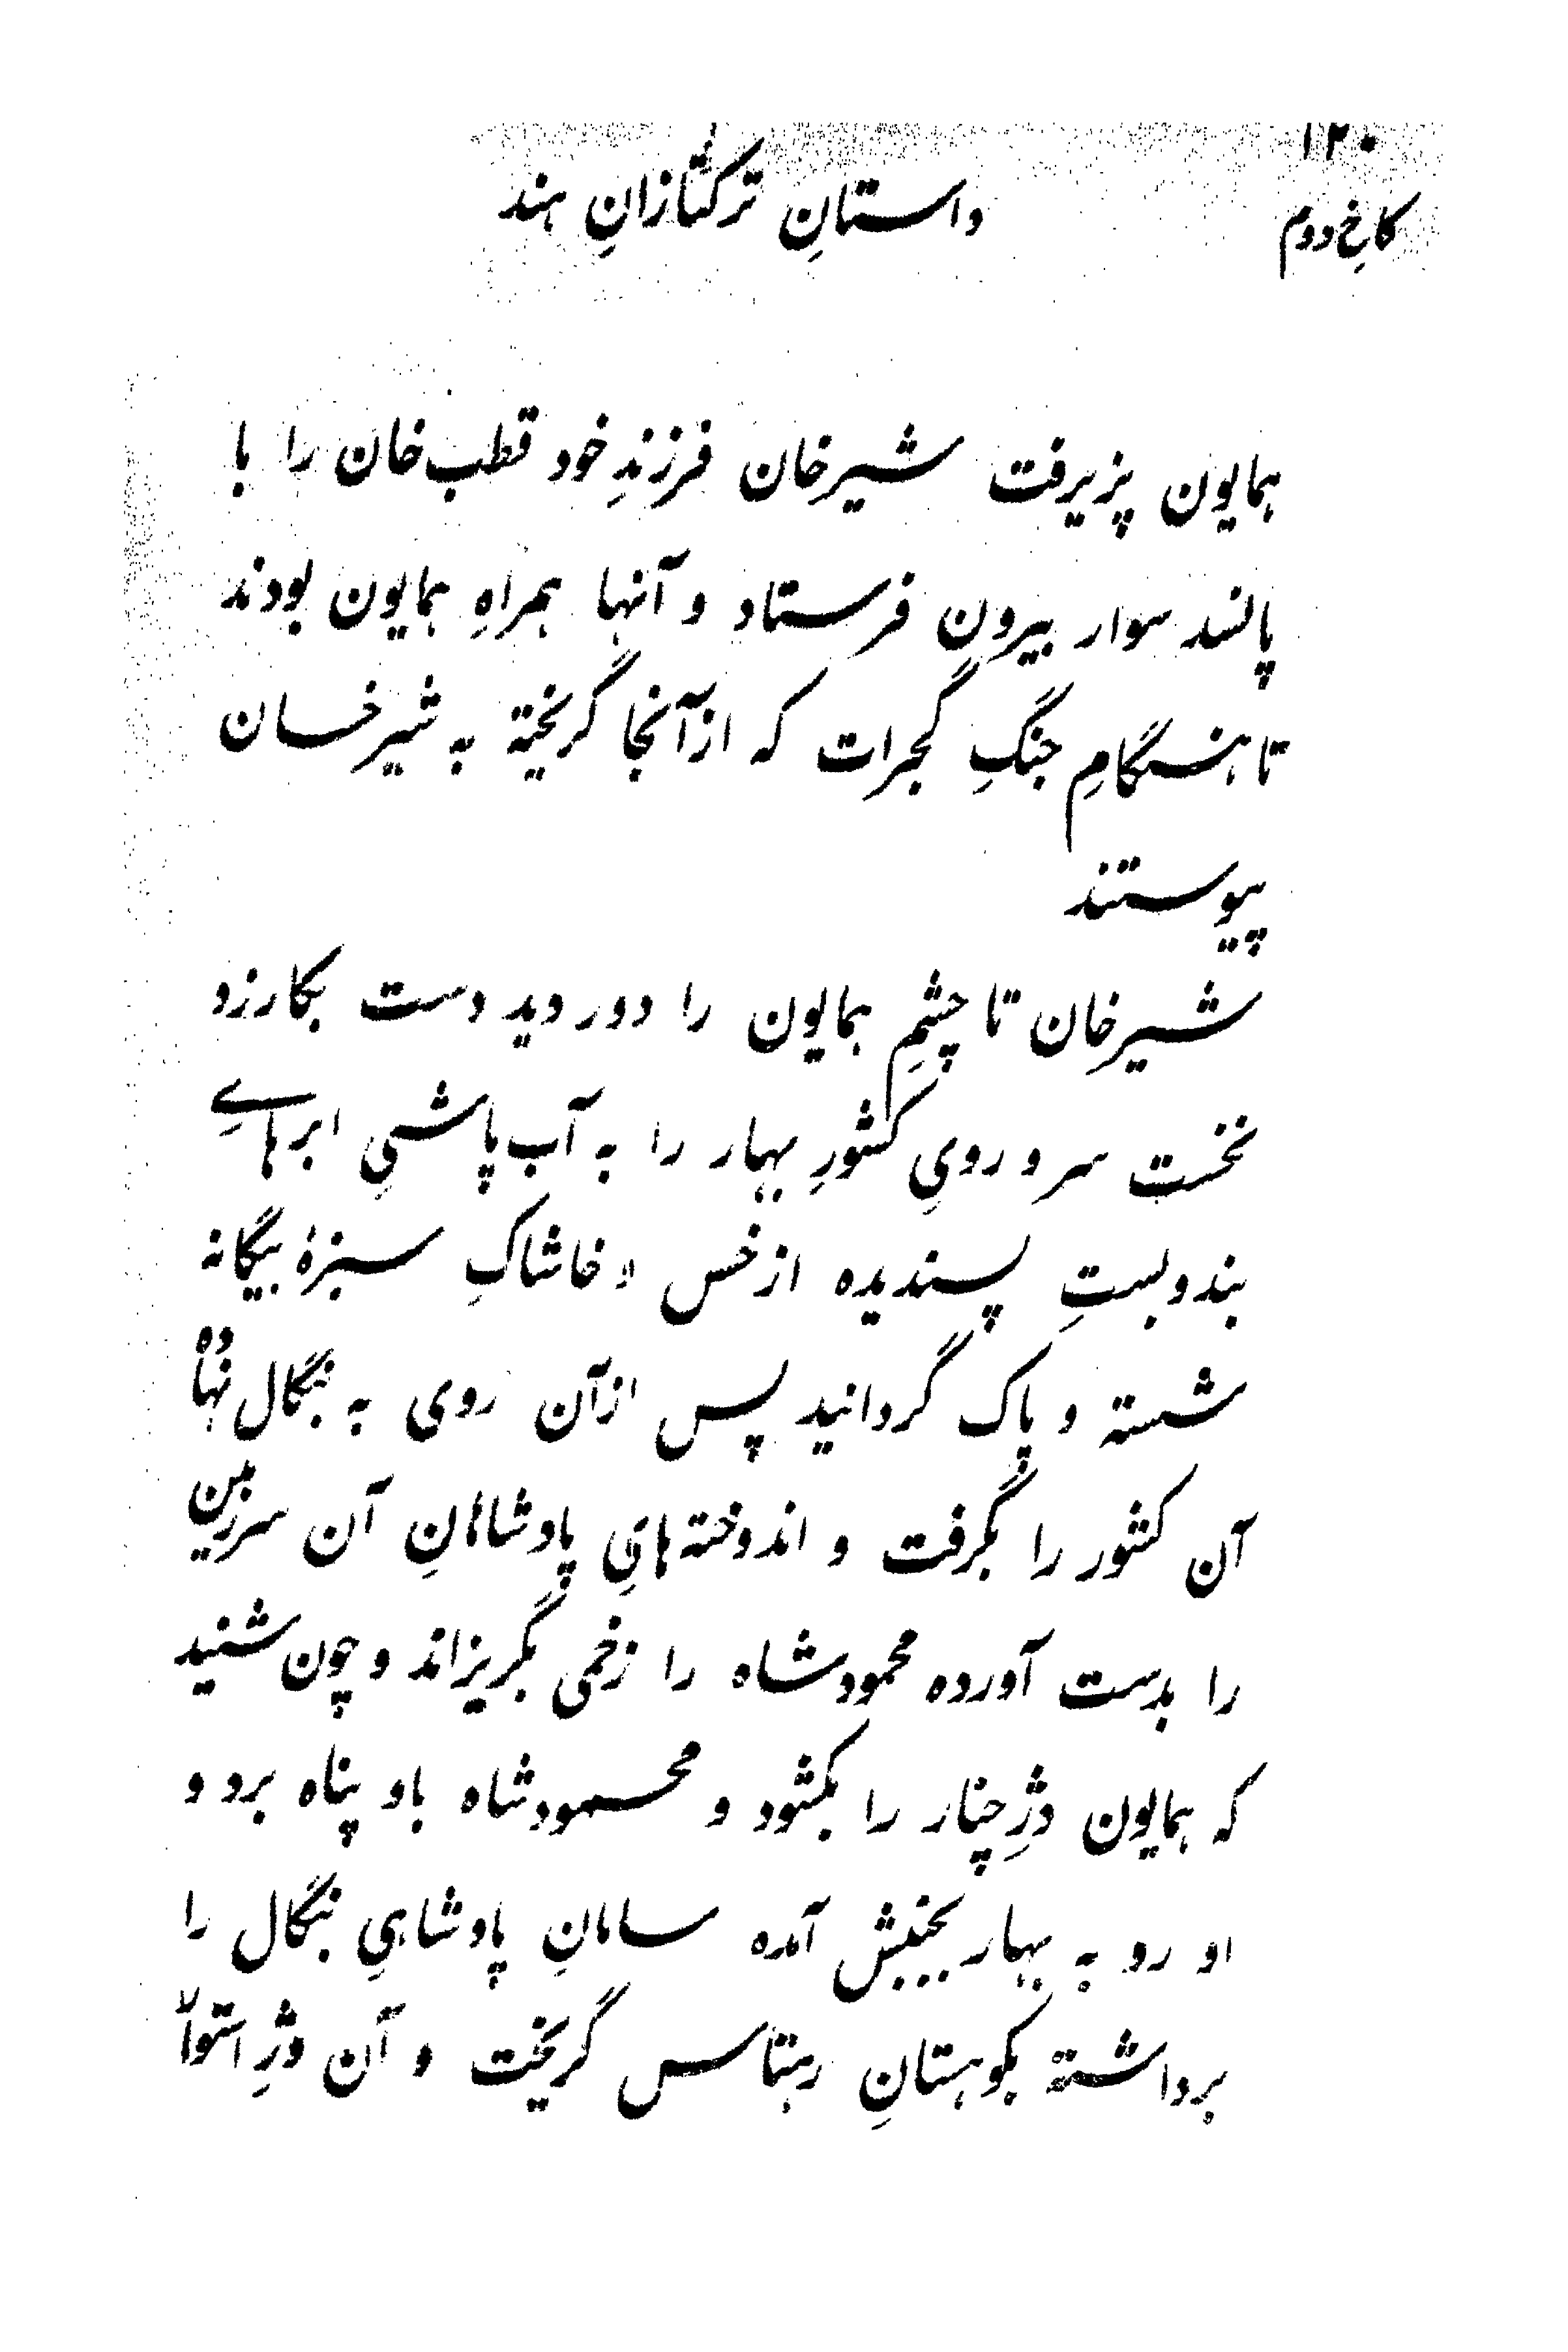 ۱۲۰
کاخِ دوم
داستانِ ترکتازانِ هند
همایون پزیرفت شیرخان فرزندِ خود قطب خان را با
پانسد سوار بیرون فرستاد و آنها همراهِ همایون بودند
تا هنگامِ جنگِ گجرات که از آنجا گریخته به شیرخان
پیوستند
شیرخان تا چشمِ همایون را دور دید دست بکار زد و
نخست سر و رویِ کشورِ بهار را به آب پاشیِ ابرهاے
بندوبستِ پسندیده از خس و خاشاکِ سبزهٔ بیگانه
شسته و پاک گردانید پس ازآن روی به بنگال نهاده
آن کشور را بگرفت و اندوخته‌هایِ پادشاهانِ آن سرزمین
را بدست آورده محمودشاه را زخمی بگریزاند و چون شنید
که همایون دژِ چنار را بکشود و محمودشاه باو پناه برد و
او رو به بهار بجنبش آمده سامانِ پادشاهیِ بنگال را
برداشته بکوهستانِ رهتاس گریخت و آن دژِ استوار